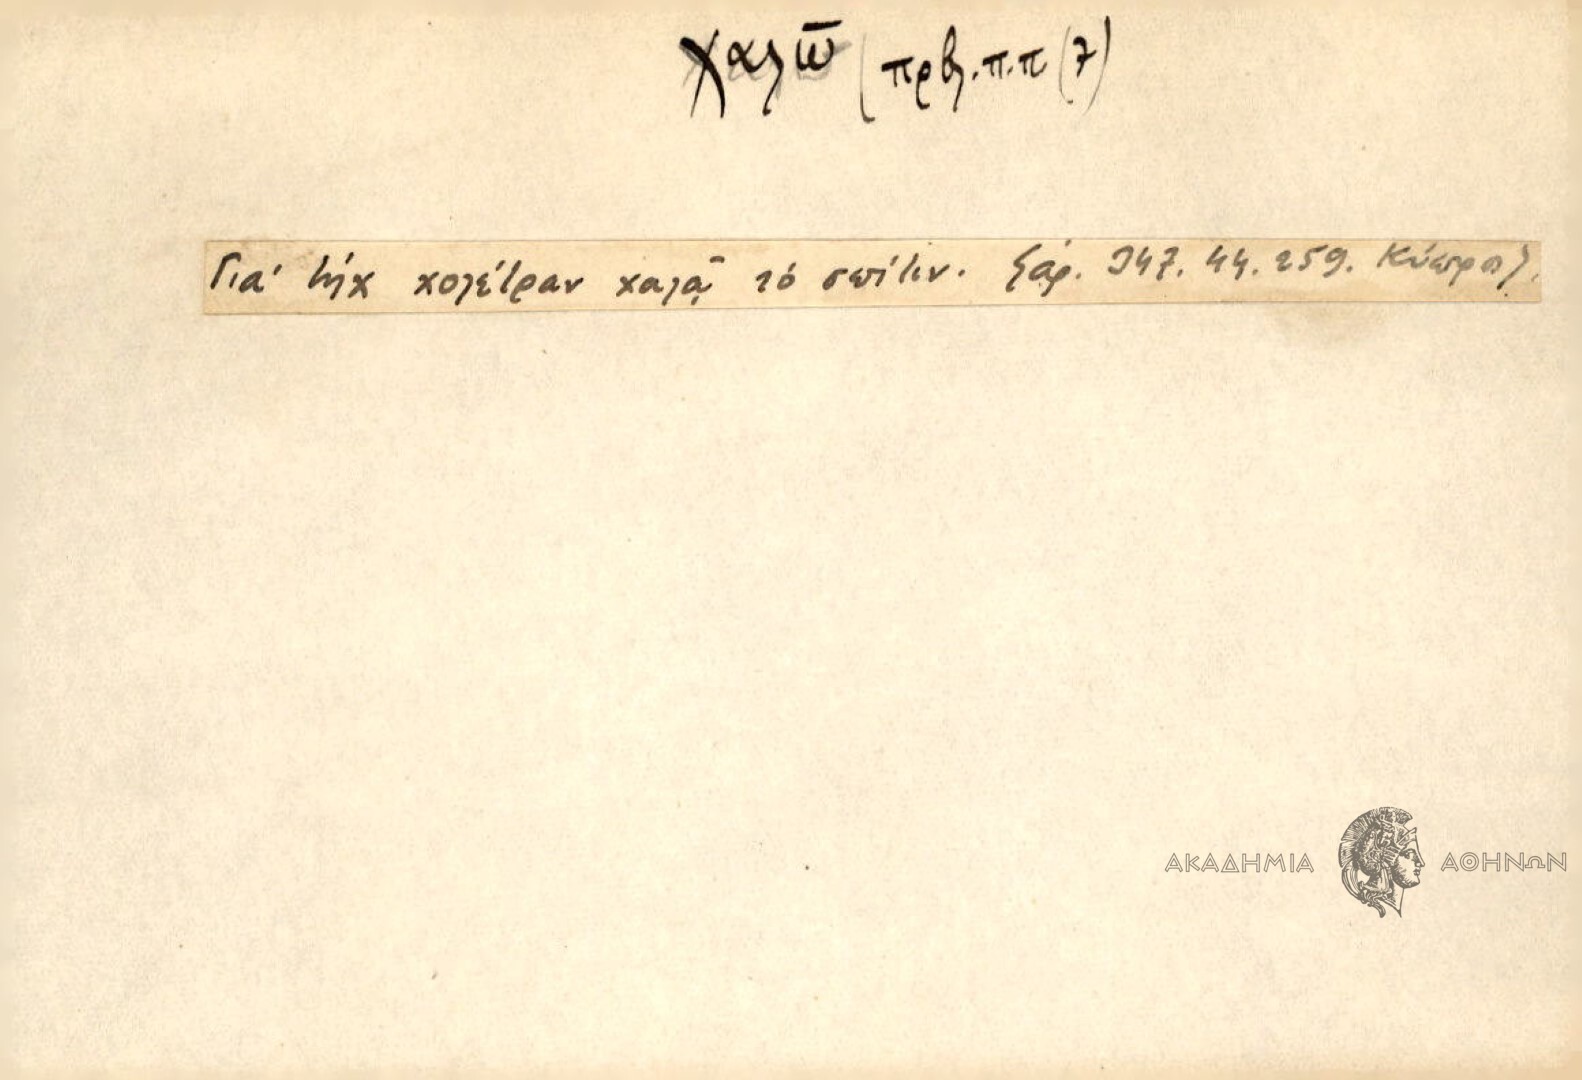 χαλῶ (πρβλ. π.π (7)
Γιὰ τὴχ χολέτραν χαλᾷ τὸ σπίτιν. Σάρ. 347. 44. 259. Κύπρος).
ΑΚΑΔΗΜΙΑ ΑΘΗΝΩΝ